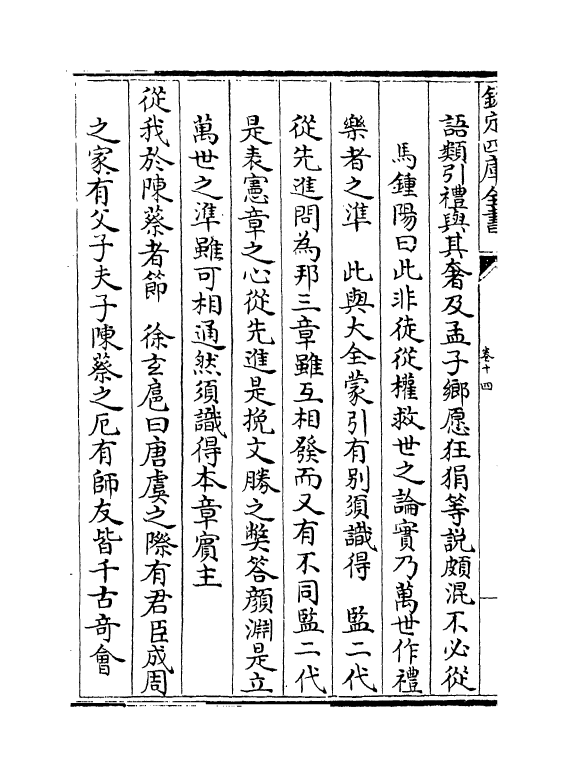 欽定四庫全書
卷十四
語類引禮與其奢及孟子鄉愿狂狷等説頗混不必從
馬鍾陽曰此非徒從權救世之論實乃萬世作禮
樂者之準　此與大全蒙引有别須識得　監二代
從先進問為邦三章雖互相發而又有不同監二代
是表憲章之心從先進是挽文勝之弊答顔淵是立
萬世之準雖可相通然須識得本章賓主
從我於陳蔡者節　徐玄扈曰唐虞之際有君臣成周
之家有父子夫子陳蔡之厄有師友皆千古奇會